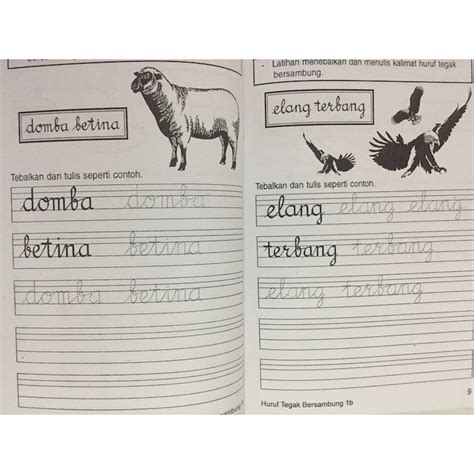 domba betina
Tebalkan dan tulis seperti contoh.
domba domba
betina betina
domba betina
- Latihan menebalkan dan menulis kalimat huruf tegak
bersambung.
elang terbang
Tebalkan dan tulis seperti contoh.
elang elang elang
terbang terbang
elang terbang
9
Huruf Tegak Bersambung 1b